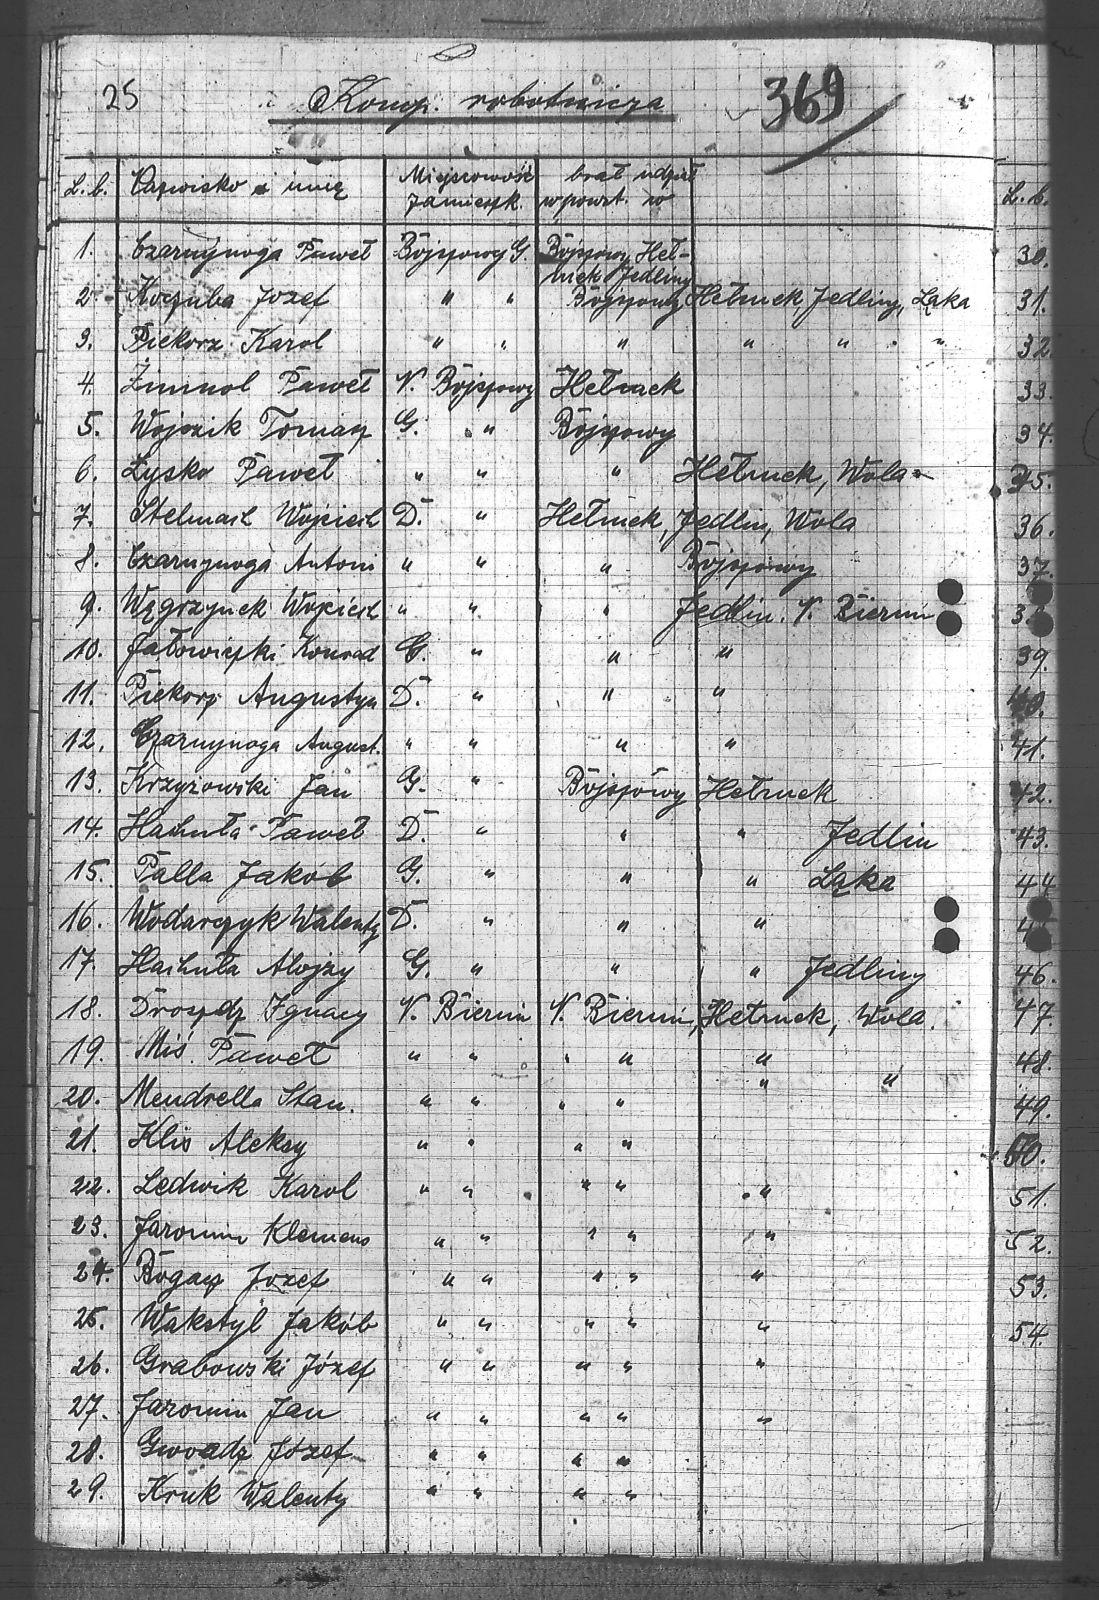 25 Komp. robotnicza 369
L.b. Nazwisko i imię Miejscowość zamieszk. brał udział w powst. w L.b.
1. Czarnynoga Paweł Bojszowy G. Bojszowy, Hełmek, Jedliny 30.
2. Koczuba Jozef " " Bojszowy Hełmek, Jedliny, Łąka 31.
3. Piekorz Karol " " " " " " 32.
4. Zimnol Paweł N. Bojszowy Hełmek 33.
5. Wojozik Tomasz G. " Bojszowy 34.
6. Łysko Paweł " " " Hełmek, Wola 35.
7. Stelmach Wojciech D. " Hełmek, Jedlin, Wola 36.
8. Czarnynoga Antoni " " " Bojszowy 37.
9. Węgrzynek Wojciech " " " Jedlin. N. Bieruń
10. Jałowiecki Konrad G. " " " 39.
11. Piekorz Augustyn D. " " " 40.
12. Czarnynoga August. " " " " 41.
13. Krzyżowski Jan G. " Bojszówy Hełmek 42.
14. Hachuła Paweł D. " " " Jedlin 43.
15. Palla Jakób G. " " " Łąka 44
16. Wodarczyk Walenty D. " " "
17. Hachuła Alojzy G. " " " Jedliny 46.
18. Drozdz Ignacy N. Bieruń N. Bieruń, Hełmek, Wola. 47.
19. Miś Paweł " " " " " 48.
20. Mendrella Stan. " " " " " " 49.
21. Klis Aleksy " " " " 50.
22. Ledwik Karol " " " " " 51.
23. Jaromin Klemens " " " " " 52.
24. Bogacz Jozef " " " " " 53.
25. Wakstyl Jakób " " " " " 54.
26. Grabowski Józef " " " " "
27. Jaromin Jan " " " " "
28. Gwozdz Józef " " " "
29. Kruk Walenty " " " "